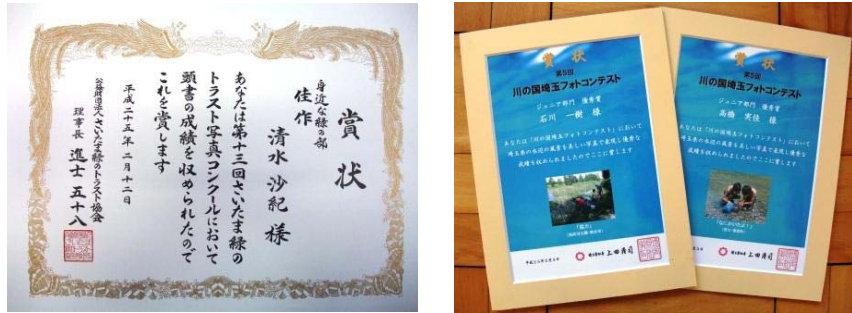 賞状
身近な緑の部
佳作
清水 沙紀 様
あなたは第十三回さいたま緑の
トラスト写真コンクールにおいて
頭書の成績を収められたので
これを賞します
平成二十五年二月十二日
公益財団法人さいたま緑のトラスト協会
理事長 進士 五十八
賞状
第5回
川の国埼玉フォトコンテスト
ジュニア部門 優秀賞
石川 一樹 様
あなたは「川の国埼玉フォトコンテスト」において
埼玉県の水辺の風景を美しい写真で表現し優秀な
成績を収められましたのでここに賞します
埼玉県知事 上田清司
賞状
第5回
川の国埼玉フォトコンテスト
ジュニア部門 優秀賞
高橋 実佳 様
あなたは「川の国埼玉フォトコンテスト」において
埼玉県の水辺の風景を美しい写真で表現し優秀な
成績を収められましたのでここに賞します
埼玉県知事 上田清司